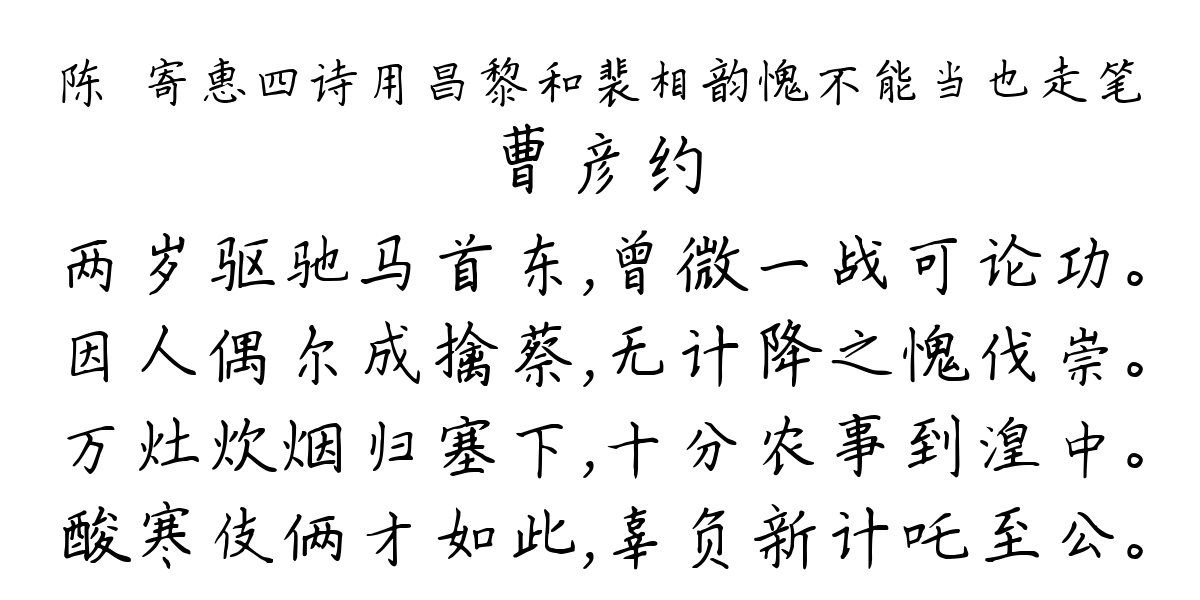 陈 寄惠四诗用昌黎和裴相韵愧不能当也走笔
曹彦约
两岁驱驰马首东,曾微一战可论功。
因人偶尔成擒蔡,无计降之愧伐崇。
万灶炊烟归塞下,十分农事到湟中。
酸寒伎俩才如此,辜负新计吒至公。